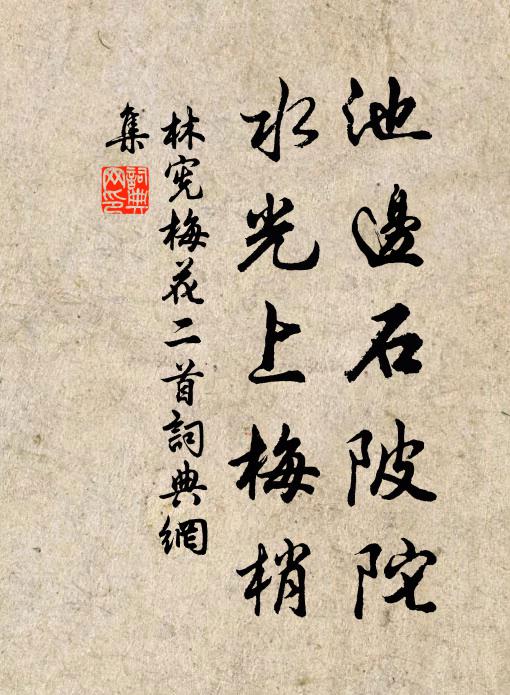 池邊石陂陀
水光上梅梢
林宪梅花二首詞典網
集
詞典
网印